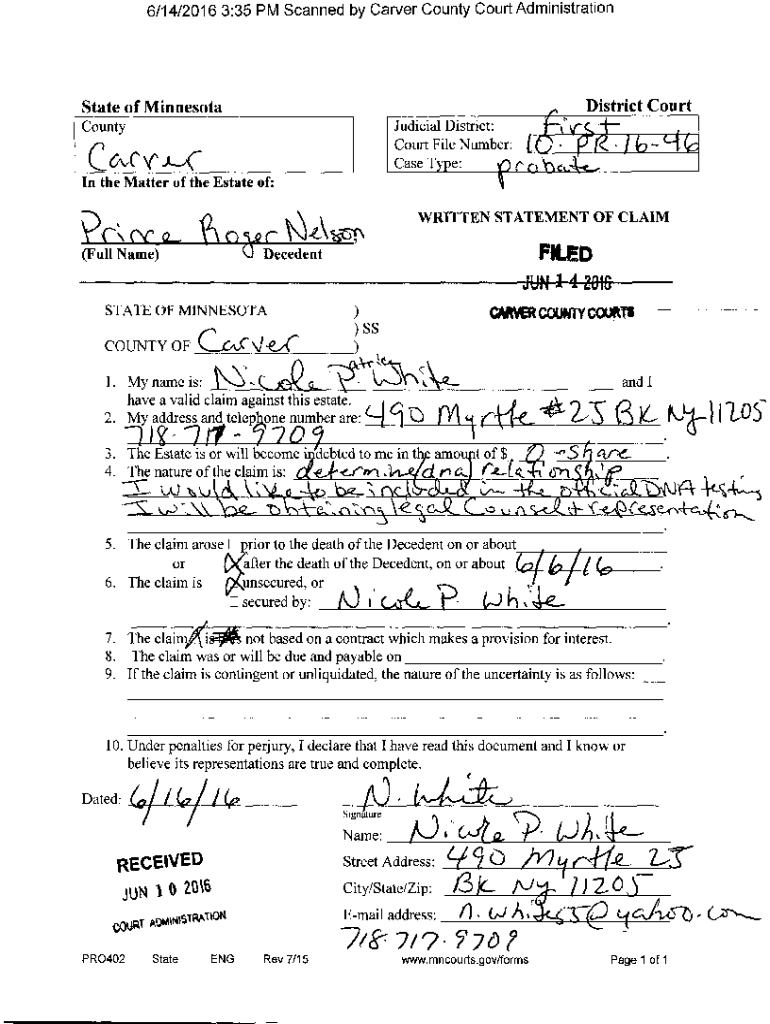 6/14/2016 3:35 PM Scanned by Carver County Court Administration
State of Minnesota
District Court
County
Carver
Judicial District: First
Court File Number: 10-PR-16-46
Case Type: probate
In the Matter of the Estate of:
Prince Roger Nelson
(Full Name) Decedent
WRITTEN STATEMENT OF CLAIM
FILED
JUN 14 2016
CARVER COUNTY COURTS
STATE OF MINNESOTA )
) SS
COUNTY OF Carver )
1. My name is: Nicole Patrice White and I
have a valid claim against this estate.
2. My address and telephone number are: 490 Myrtle #2J BK NY 11205
718-717-9709
3. The Estate is or will become indebted to me in the amount of $ 0 - Share
4. The nature of the claim is: determine/dna/relationship
I would like to be included in the official DNA testing
I will be obtaining legal Counsel + representation
5. The claim arose prior to the death of the Decedent on or about
or X after the death of the Decedent, on or about 6/6/16
6. The claim is X unsecured, or
secured by: Nicole P. White
7. The claim X is not based on a contract which makes a provision for interest.
8. The claim was or will be due and payable on
9. If the claim is contingent or unliquidated, the nature of the uncertainty is as follows:
10. Under penalties for perjury, I declare that I have read this document and I know or
believe its representations are true and complete.
Dated: 6/16/16 N. White
Signature
Name: Nicole P. White
RECEIVED
JUN 10 2016
COURT ADMINISTRATION
Street Address: 490 Myrtle 2J
City/State/Zip: BK NY 11205
E-mail address: @yahoo.com
718-717-9709
PRO402 State ENG Rev 7/15 www.mncourts.gov/forms Page 1 of 1